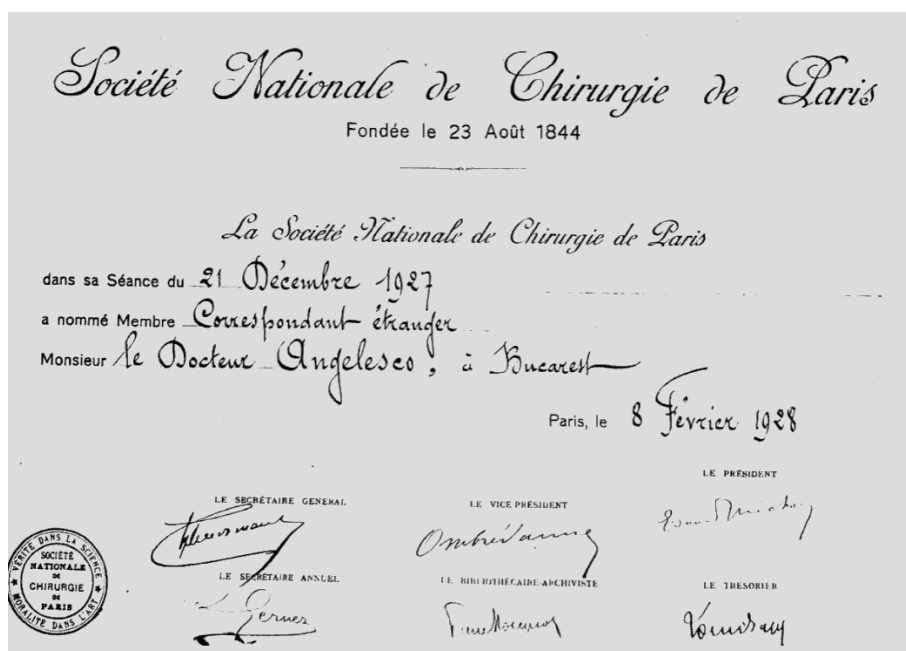 Société Nationale de Chirurgie de Paris
Fondée le 23 Août 1844
La Société Nationale de Chirurgie de Paris
dans sa Séance du 21 Décembre 1927
a nommé Membre Correspondant étranger
Monsieur le Docteur Angelesco, à Bucarest
Paris, le 8 Février 1928
LE PRÉSIDENT
LE SECRÉTAIRE GENERAL
LE VICE PRÉSIDENT
Ombrédanne
LE SECRÉTAIRE ANNUEL
LE BIBLIOTHÉCAIRE-ARCHIVISTE
LE TRÉSORIER
VÉRITÉ DANS LA SCIENCE
MORALITÉ DANS L'ART
SOCIÉTÉ
NATIONALE
DE
CHIRURGIE
DE
PARIS